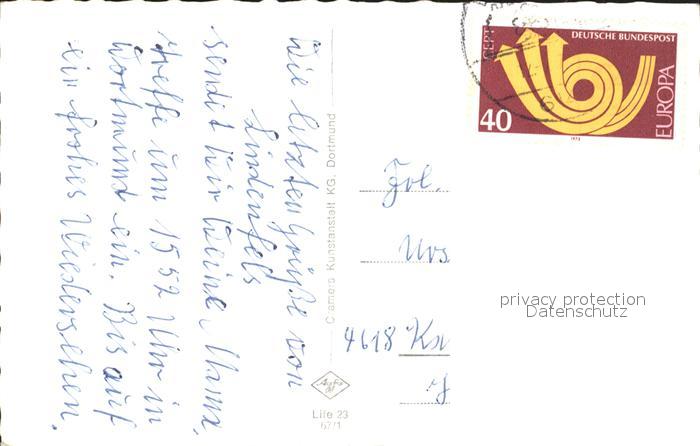 Die letzten Grüße von
Lindenfels
sendet Dir Deine Mama,
treffe um 15 52 Uhr in
Dortmund ein. Bis auf
ein frohes Wiedersehen.
Cramers Kunstanstalt KG, Dortmund
Life 23
67/1
CEPT
DEUTSCHE BUNDESPOST
40
EUROPA
1973
Frl.
Urs
4618 Ka
privacy protection
Datenschutz